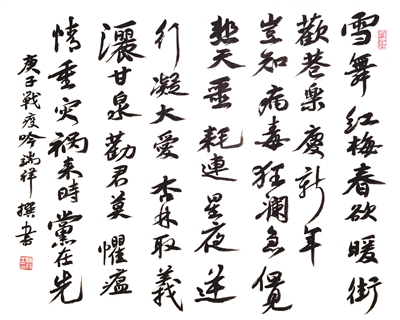 雪舞红梅春欲暖街
歡巷樂慶新年
豈知病毒狂瀾急
天噩耗連星夜逆
行凝大愛杏林取義
灑甘泉勸君莫懼瘟
情重灾禍来時黨在先
庚子戰疫吟端祥撰書